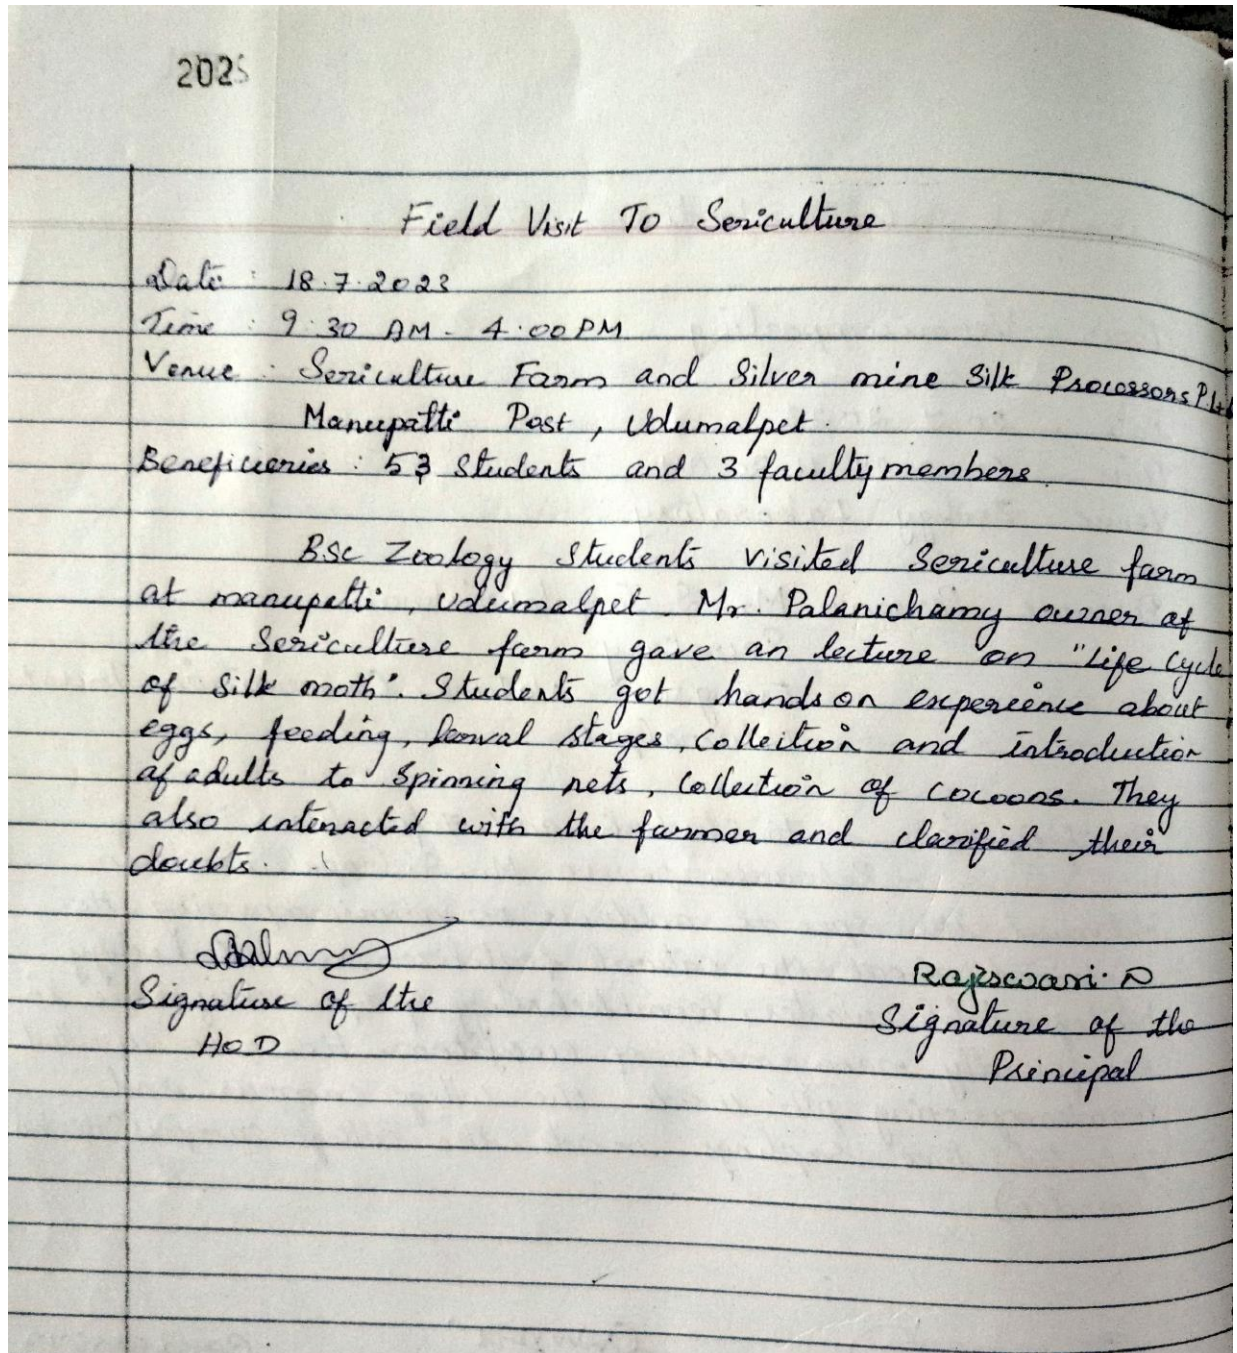 2025
Field Visit To Sericulture
Date : 18.7.2023
Time : 9.30 AM - 4.00 PM
Venue : Sericulture Farm and Silver mine Silk Processors P
Manupatti Post, Udumalpet.
Beneficieries : 53 Students and 3 faculty members.
BSc Zoology Students visited Sericulture farm
at manupatti, Udumalpet. Mr. Palanichamy owner of
the Sericulture farm gave an lecture on "Life Cycle
of Silk moth". Students got hands on experience about
eggs, feeding, larval stages, collection and introduction
of adults to spinning nets, collection of cocoons. They
also interacted with the farmer and clarified their
doubts.
Signature of the
HOD
Rajeswari. N
Signature of the
Principal